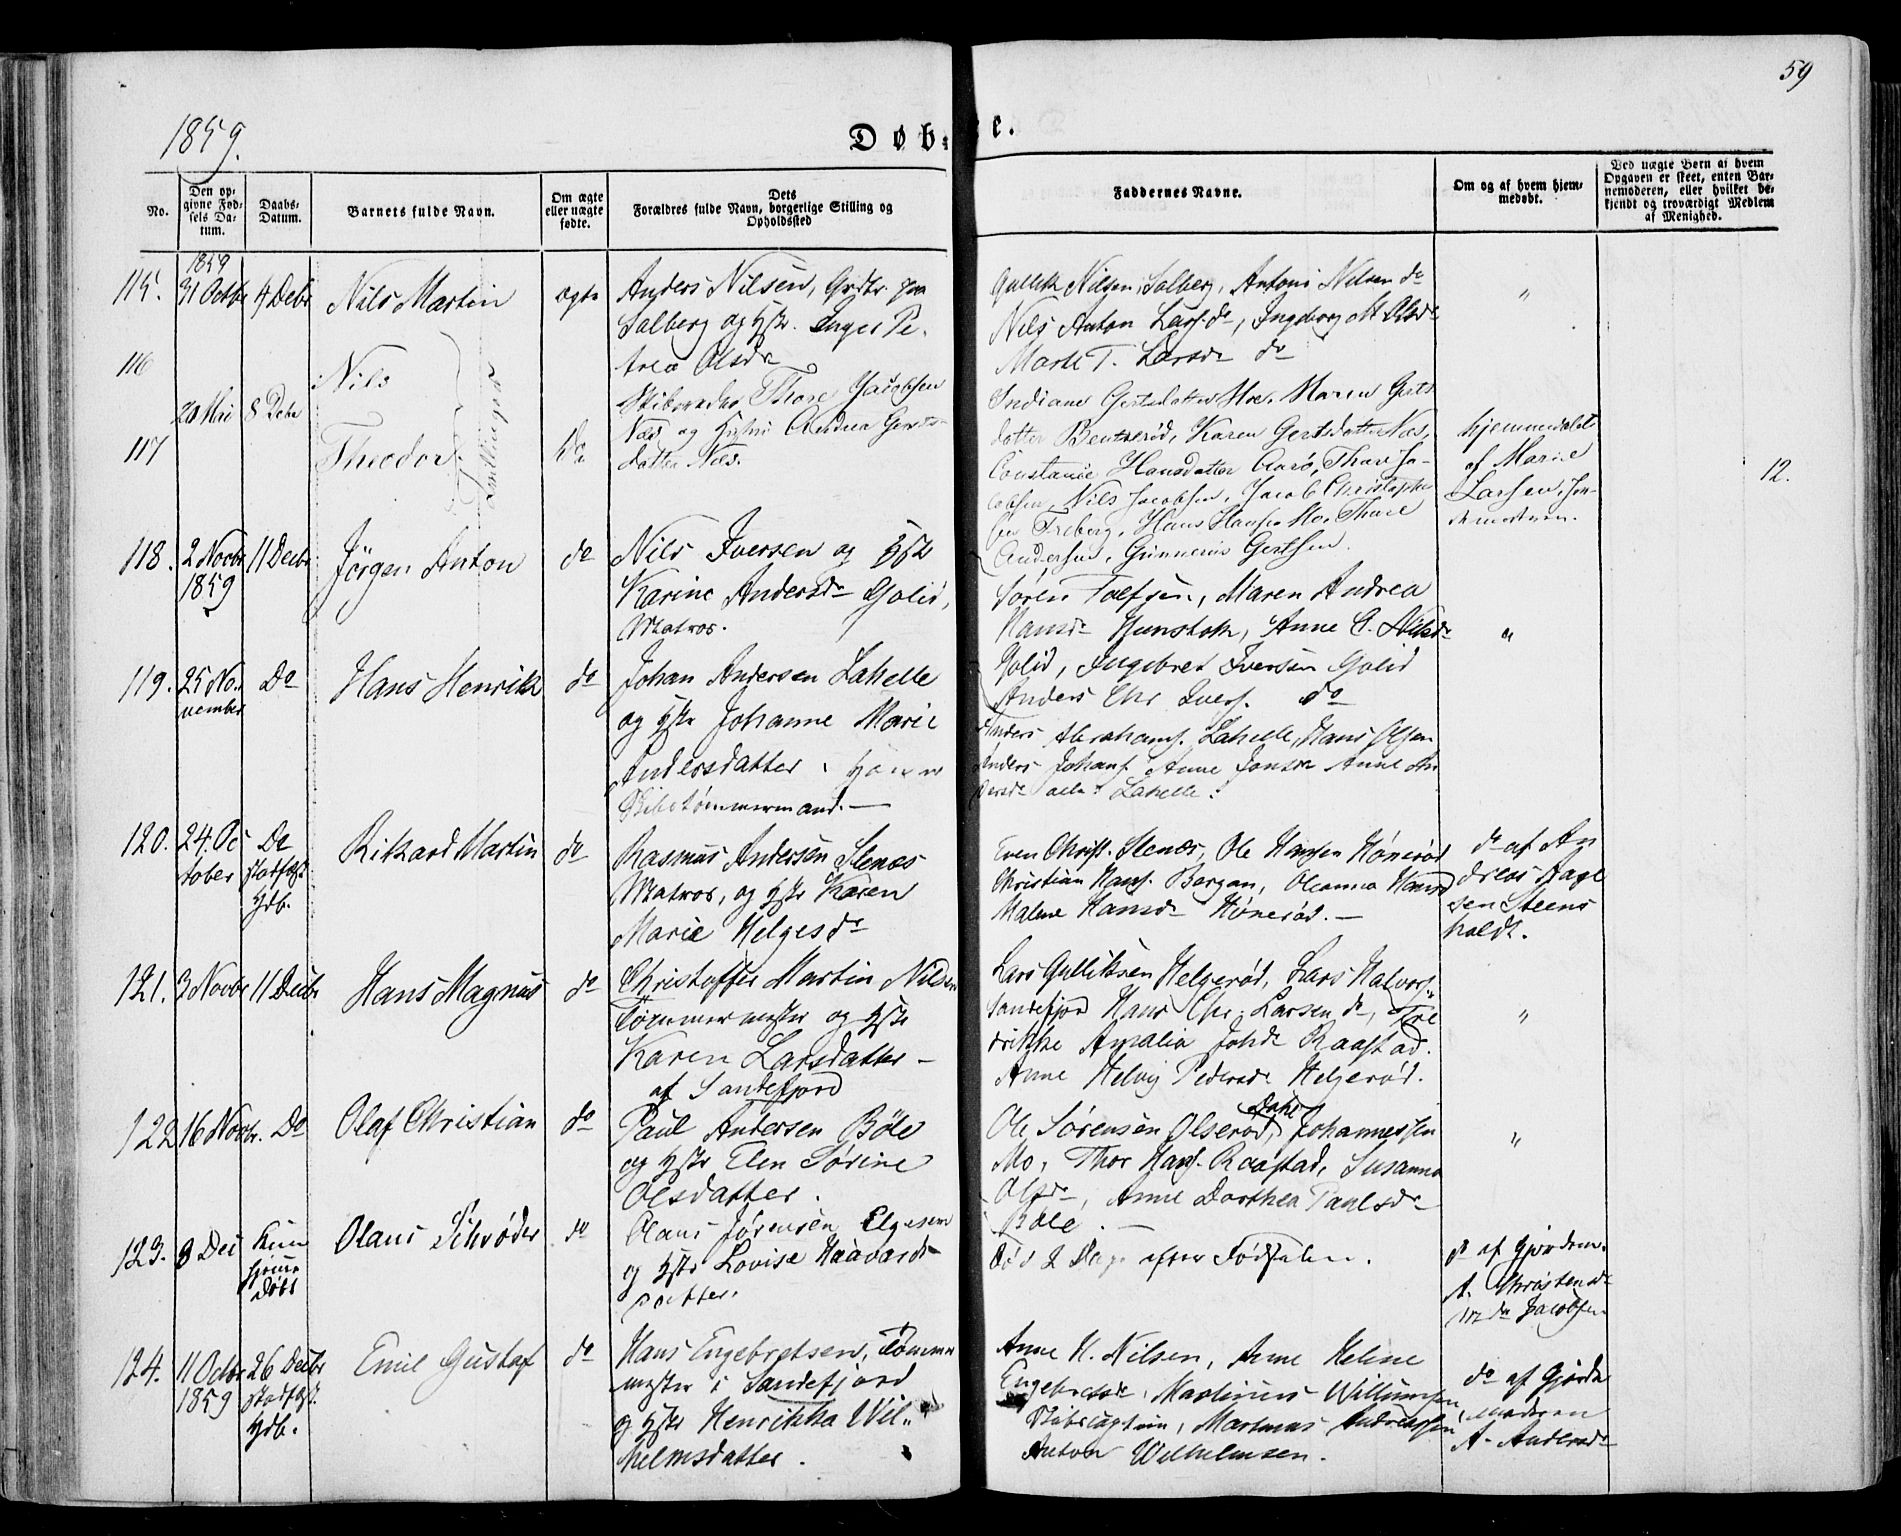 59
1859.
Døb-
te.
No.
Den op-
givne Fød-
sels Da-
tum.
Daabs-
Datum.
Barnets fulde Navn.
Om ægte
eller uægte
fødte.
Dets
Forældres fulde Navn, borgerlige Stilling og
Opholdssted
Faddernes Navne.
Om og af hvem hjem-
medøbt.
Ved uægte Børn af hvem
Opgaven er skeet, enten Bar-
nemoderen, eller hvilket be-
kjendt og troværdigt Medlem
af Menighed.
115.
1859
31 Octbr
4 Debr
Nils Martin
ægte
Anders Nilsen, Grdbr. paa
Solberg og Hstr. Inger Pe-
trea Olsdr
Gullik Nilsen, Solberg, Antoni Nilsen do
Nils Anton Lars. do, Ingeborg M Olsdr
Marte T. Larsdr do
"
116
117
20 Mai
8 Debr
Nils
Theodor
Tvillinger
Do
Thore Jacobsen
Næs og Hustru Andrea Gerts-
datter Næs.
Indiane Gertsdatter Moe. Maren Gerts
datter Bentserød, Karen Gertsdatter Næs,
Constance Hansdatter Aarø, Thore Ja-
cobsen, Nils Jacobsen, Jacob Christophe
sen Freberg, Hans Hansen Mo. Thore
Andersen, Gunnerius Gertsen.
hjemmedøbt
af Marie
Larsen, Jor-
demoderen.
12.
118.
2 Novbr
1859
11 Decbr
Jörgen Anton
do
Nils Iversen og Hstr
Karine Andersdr Golid,
Matros.
Søren Tolfsen, Maren Andrea
Hansdr Hunstok, Anne C. Nilsdr
Golid, Ingebret Iversen Golid
Anders Chr Ivers. do
"
119.
25 No-
vember
Do
Hans Henrik
do
Johan Andersen Lahelle
og Hstr Johanne Marie
Andersdatter
Skibstømmermand. —
Anders Abrahams. Lahelle, Hans Olsen
Anders Johans. Anne Jonsdr Anne An
dersdr alle: Lahelle.
120.
24. Oc
tober
Do
stadfæst
Hdb.
Rikard Martin
do
Rasmus Andersen Stenæs
Matros, og Hstr Karen
Marie Helgesdr
Even Christ. Stenæs, Ole Hansen Hönerød
Christian Hans. Bergan, Oleanna Hansd
Malene Hansdr Hönerød. —
do af An
dreas Aage
sen Steens
holdt.
121.
3 Novbr
11 Decbr
Hans Magnus
do
Christoffer Martin Nilsen
Tömmermester og Hstr
Karen Larsdatter —
af Sandefjord
Lars Gulliksen Helgerød, Lars Halvors.
Sandefjord Hans Chr. Larsen do, Fre
drikke Amalia Johsdr Raastad.
Anne Helvig Pedersdr Helgerød.
"
122
16 Novbr.
Do
Olaf Christian
do
Paul Andersen Böle
og Hstr Elen Sörine
Olsdatter.
Ole Sørensen Olserød, Johannessen
Mo, Thor Hans. Raastad, Susanna
Olsdr, Anne Dorthea Paulsdr
Bøle. —
"
123.
8 Dec
Kun
hjemme
døbt
Olaus Schrøder
do
Olaus Jørgensen Elgesem
og Hstr Lovise Haavards-
datter.
Død 2 Dage efter Fødselen.
do af Gjordem.
A. Christensdr
Jacobsen
124.
11 Octbr
1859
26 Decbr
stadfæst.
Hdb.
Emil Gustaf
do
Hans Engebretsen, Tömmer
mester i Sandefjord
og Hstr Henrikka Wil-
helmsdatter.
Anne H. Nilsen, Anne Heline
Engebretsdr, Martinius Willumsen
Martinus Andreassen
Anton Wilhelmsen.
do af Gjorde
moderen
A. Andersdr